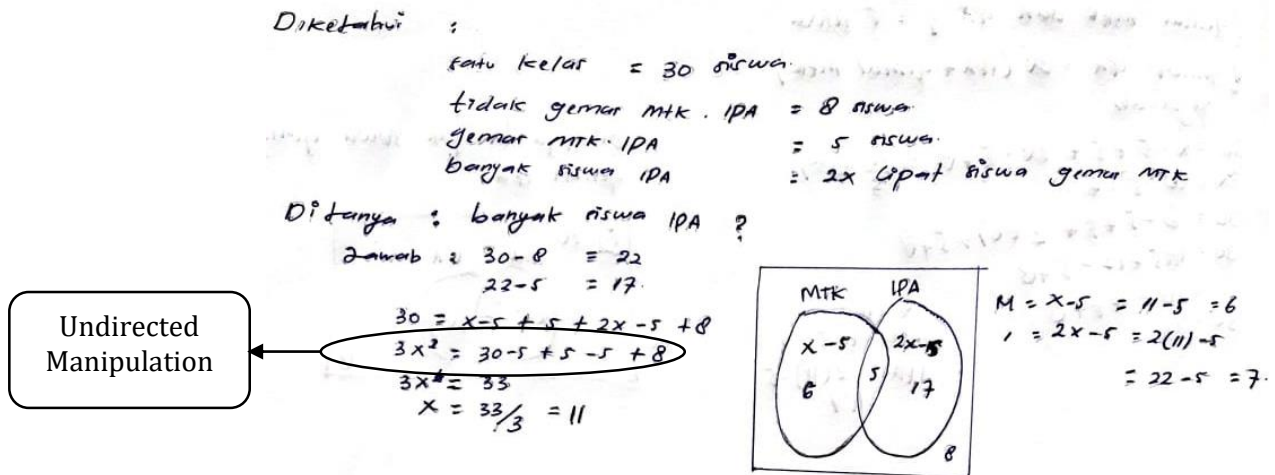 Diketahui :
satu kelas = 30 siswa.
tidak gemar mtk . IPA = 8 siswa.
gemar MTK. IPA = 5 siswa.
banyak siswa IPA = 2x lipat siswa gemar MTK
Ditanya : banyak siswa IPA ?
Jawab : 30-8 = 22
22-5 = 17.
30 = x-5 + 5 + 2x -5 +8
3x² = 30-5 + 5 -5 + 8
3x = 33
x = 33/3 = 11
Undirected
Manipulation
MTK IPA
x-5 5 2x-5
6 17
8
M = x-5 = 11-5 = 6
= 2x-5 = 2(11)-5
= 22-5 = 7.